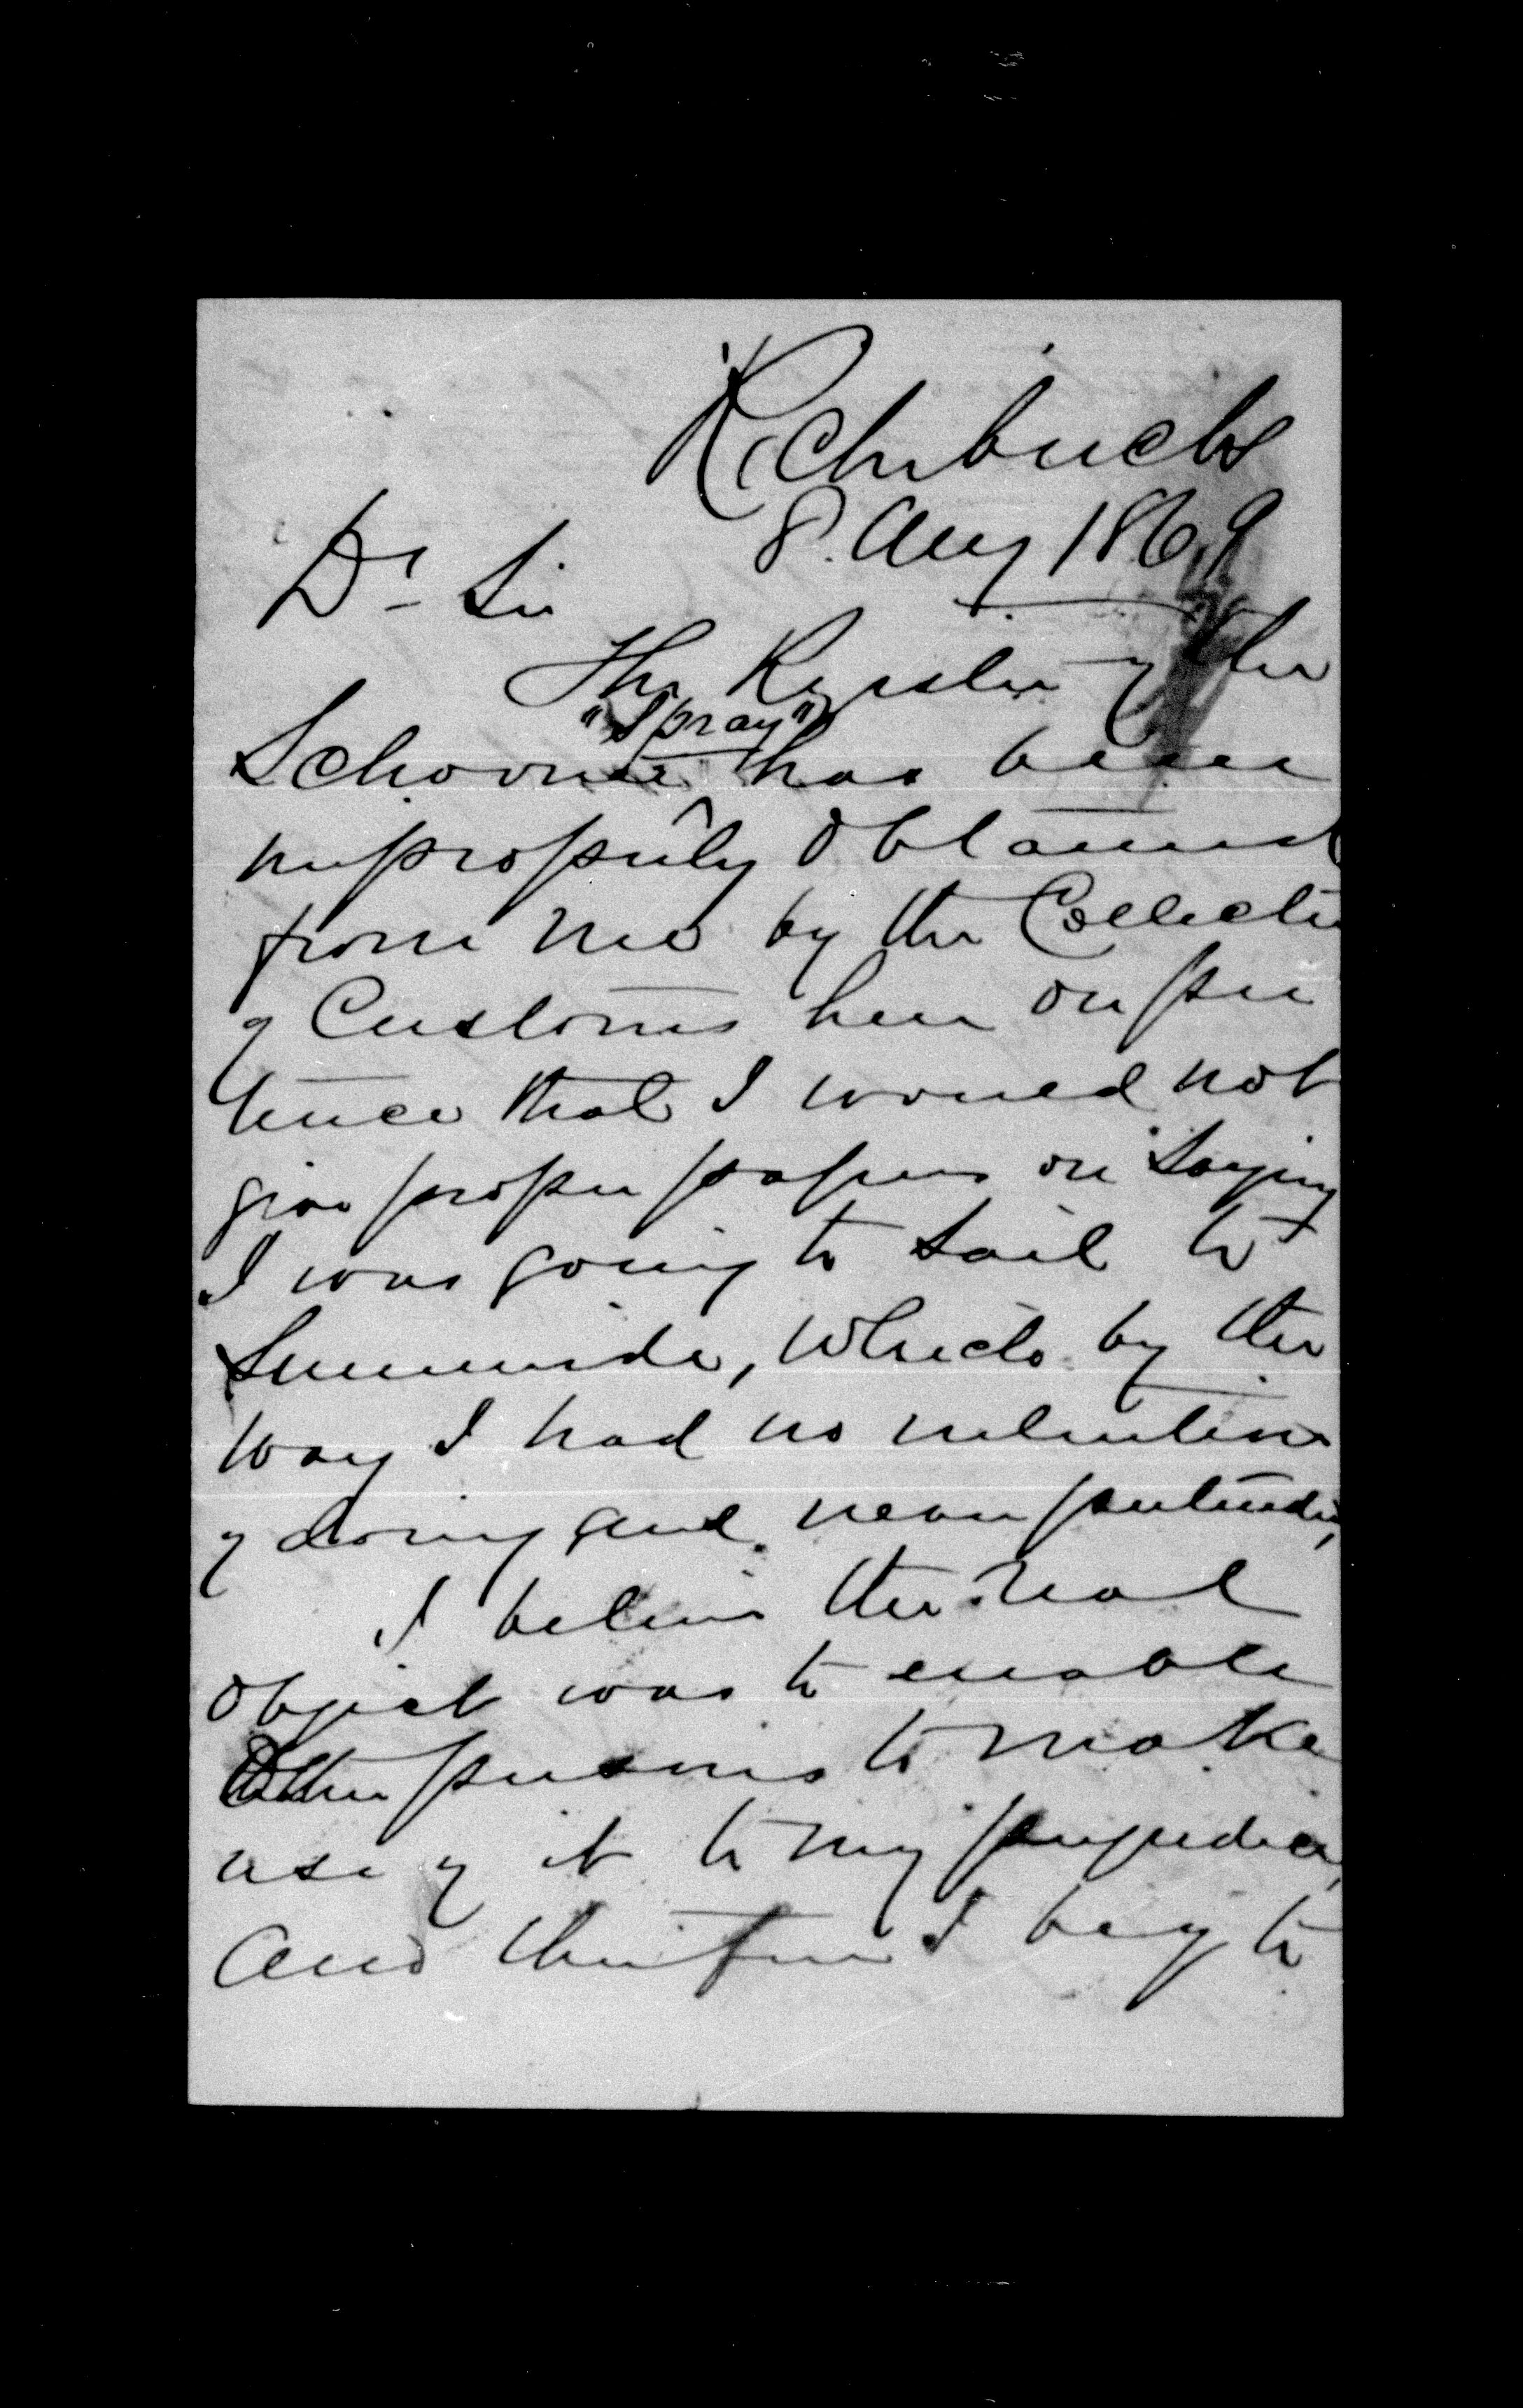 Richibucto
8. Aug 1869
Dr Sir
The Register of the
"Spray"
Schooner ^ has been
improperly obtained
from me by the Collector
of Customs here on pre
tence that I would not
give proper papers on saying
I was going to sail to
Summerside, which by the
way I had no intention
of doing and never pretended,
I believe the real
object was to enable
Other persons to make
use of it to my prejudice,
and therefore I beg to